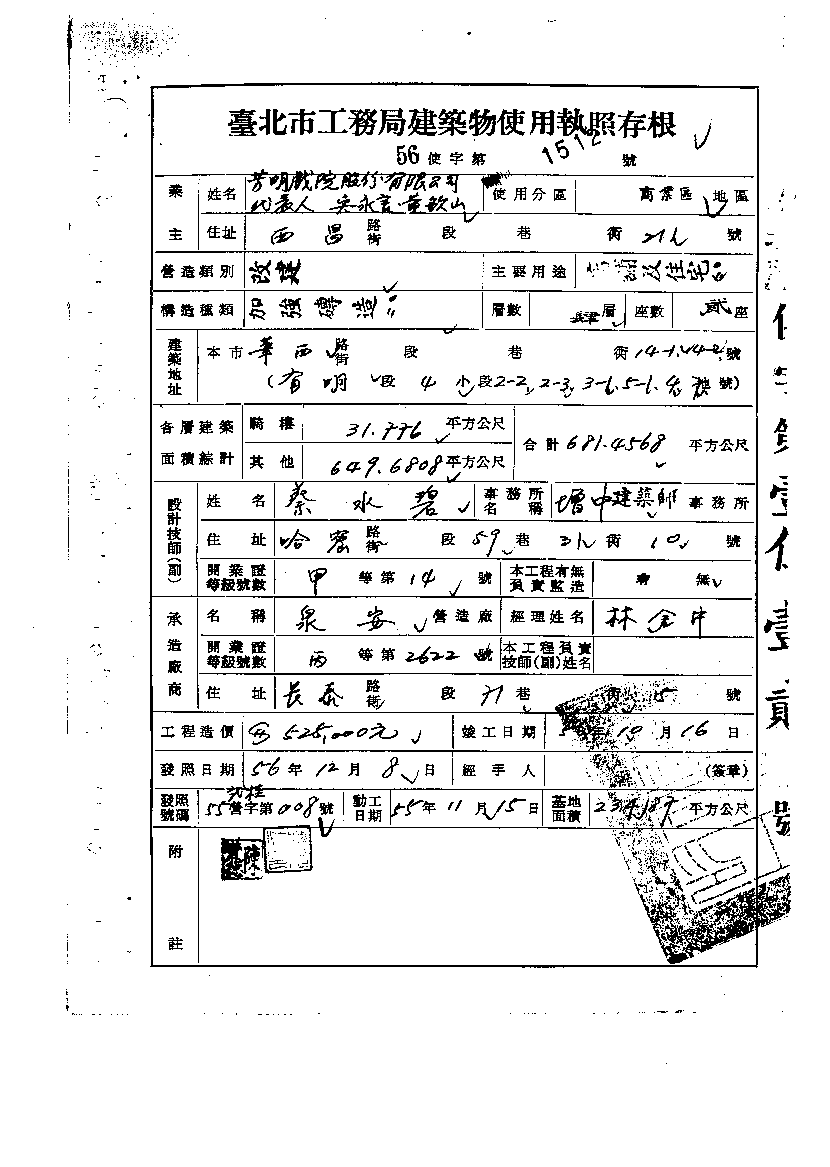 臺北市工務局建築物使用執照存根
56使字第1512號
業主 姓名 芳明戲院股份有限公司 使用分區 商業區地區
代表人 吳永言 黃欽山
住址 西昌路街 段 巷 衖 號
營造類別 改建 主要用途 店舖及住宅
構造種類 加強磚造 層數 肆層 座數 貳座
建築地址 本市華西路街 段 巷 衖14-1.14-2號
(有明段4小段2-2,2-3,3-1,5-1,4 號)
各層建築面積綜計 騎樓 31.776平方公尺 合計681.4568平方公尺
其他 649.6808平方公尺
設計技師(副) 姓名 蔡水碧 事務所名稱 增中建築師事務所
住址 哈密路街 段59巷 衖10號
開業證等級號數 甲等第14號 本工程有無負責監造 有 無
承造廠商 名稱 泉安營造廠 經理姓名 林金中
開業證等級號數 丙等第2622號 本工程負責技師(副)姓名
住址 長泰路街 段71巷 衖15號
工程造價 525,000元 竣工日期 年10月16日
發照日期 56年12月8日 經手人 (簽章)
發照號碼 55營字第008號 動工日期 55年11月15日 基地面積 平方公尺
附註
使字第壹仟
壹貳號